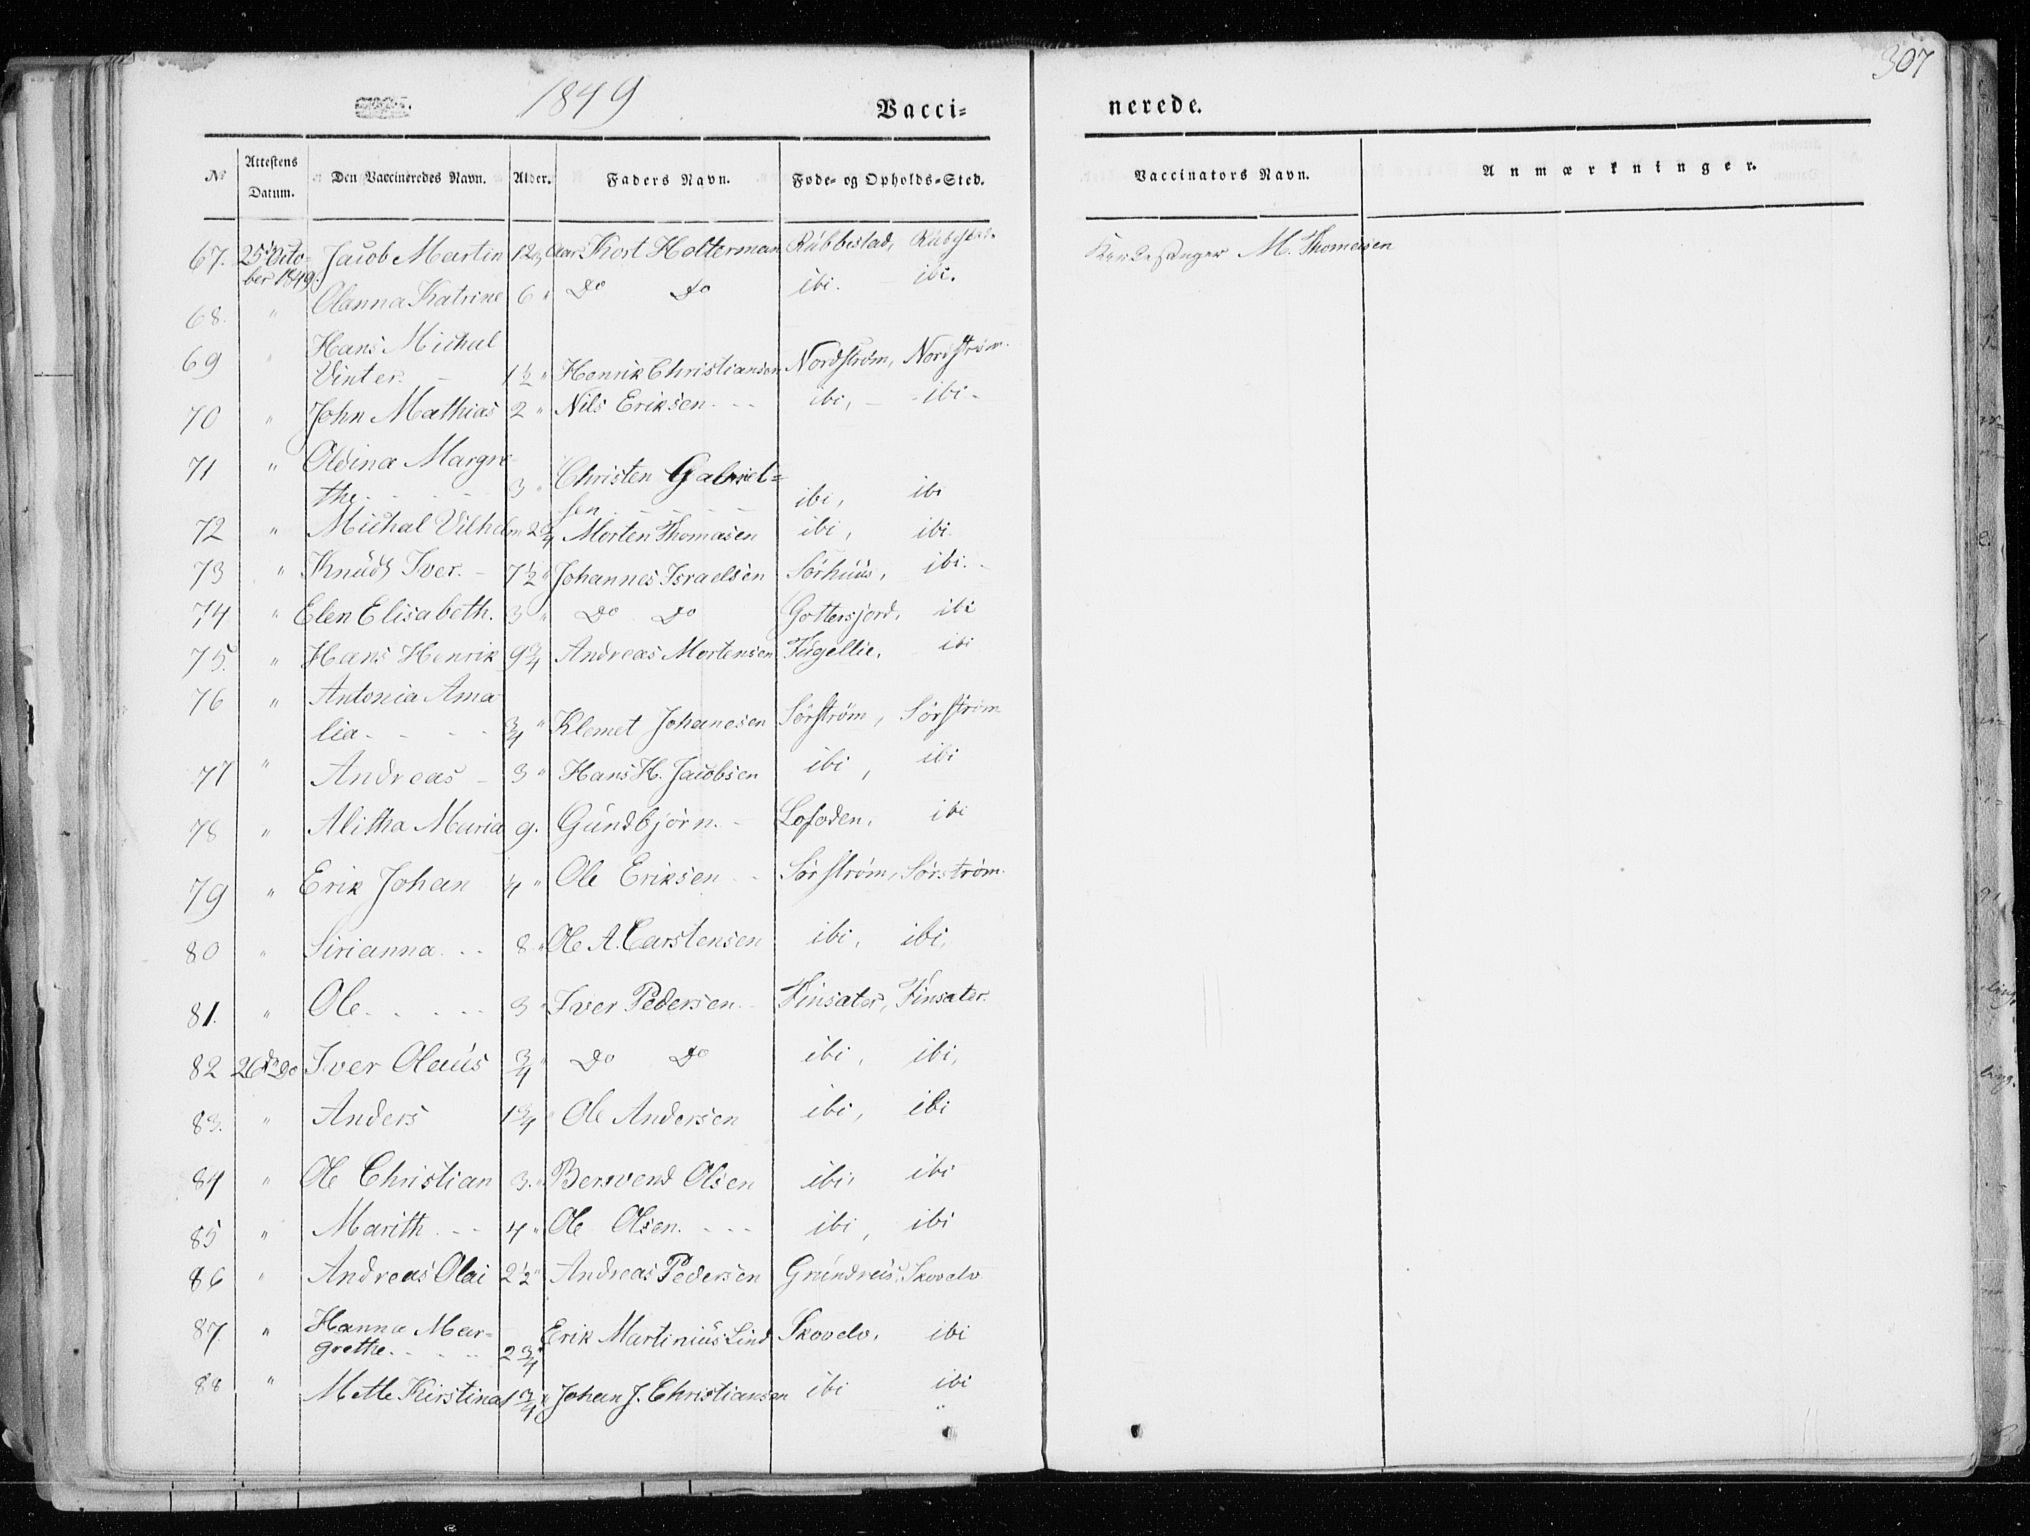 307
1849
Vacci= nerede.
No Attestens Datum. Den Vaccineredes Navn. Alder. Faders Navn. Føde- og Opholds-Sted. Vaccinators Navn. Anmærkninger.
67. 25de October 1849. Jacob Martin 12 Kort Holterman Rubbestad, M. Thomesen
68. " Olanna Katrine 6 " Do Do ibi. ibi.
69 " Hans Michal
Vinter. 1½ " Henrik Christiansen Nordstrøm, Nordstrøm.
70 " John Mathias 2 " Nils Eriksen. ibi, ibi.
71 " Oldina Margre
the. 3 " Christen Gabriel=
sen ibi, ibi
72 " Michal Vilhelm 2¾ Morten Thomasen ibi, ibi.
73 " Knud Iver. 7½ " Johannes Israelsen Sørhuus, ibi.
74 " Elen Elisabeth. 3 " Do Do Gottersjord, ibi
75. " Hans Henrik 9¾ Andreas Mortensen Fugellie, ibi
76 " Antonia Ama
lia. ¾ " Klemet Johanesen Sørstrøm, Sørstrøm
77 " Andreas 3 " Hans H. Jacobsen ibi, ibi
78 " Alitha Maria 9. Gundbjørn. Lofoden, ibi
79 " Erik Johan ¼ " Ole Eriksen Sørstrøm, Sørstrøm.
80 " Sirianna 8 " Ole A. Carstensen ibi, ibi,
81. " Ole 3 " Iver Pedersen Finsæter, Finsæter.
82 26de Do Iver Olaus ¾ " Do Do ibi, ibi,
83. " Anders 1¾ Ole Andersen ibi, ibi
84 " Ole Christian 3. " Bersvend Olsen ibi, ibi
85 " Marith 4 " Ole Olsen. ibi, ibi
86 " Andreas Olai 2½ " Andreas Pedersen Grundreis, Skovelv
87 " Hanna Mar=
grethe. 2¾ " Erik Martinius Lind Skovelv, ibi
88 " Mette Kirstina 1¾ " Johan J. Christiansen ibi ibi